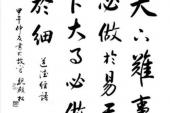 天下難事
必做於易天
下大事必做
於細 道德經語
甲午仲夏書於